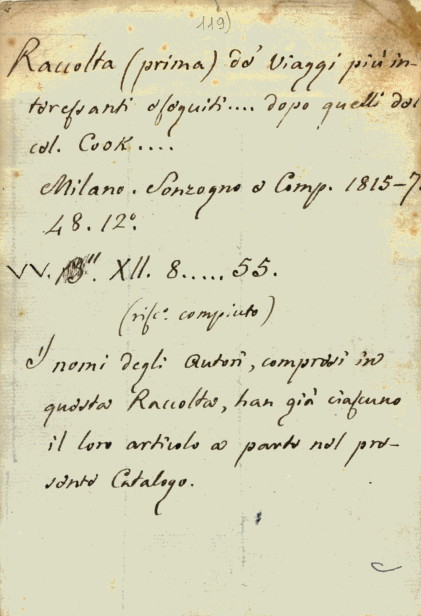 119)
Raccolta (prima) de' Viaggi più in-
teressanti eseguiti.... dopo quelli del
cel. Cook....
Milano. Sonzogno e Comp. 1815-7.
48. 12º.
VV. XII. 8.....55.
(rifcº. compiuto)
I nomi degli autori, compresi in
questa Raccolta, han già ciascuno
il loro articolo a parte nel pre-
sente Catalogo.